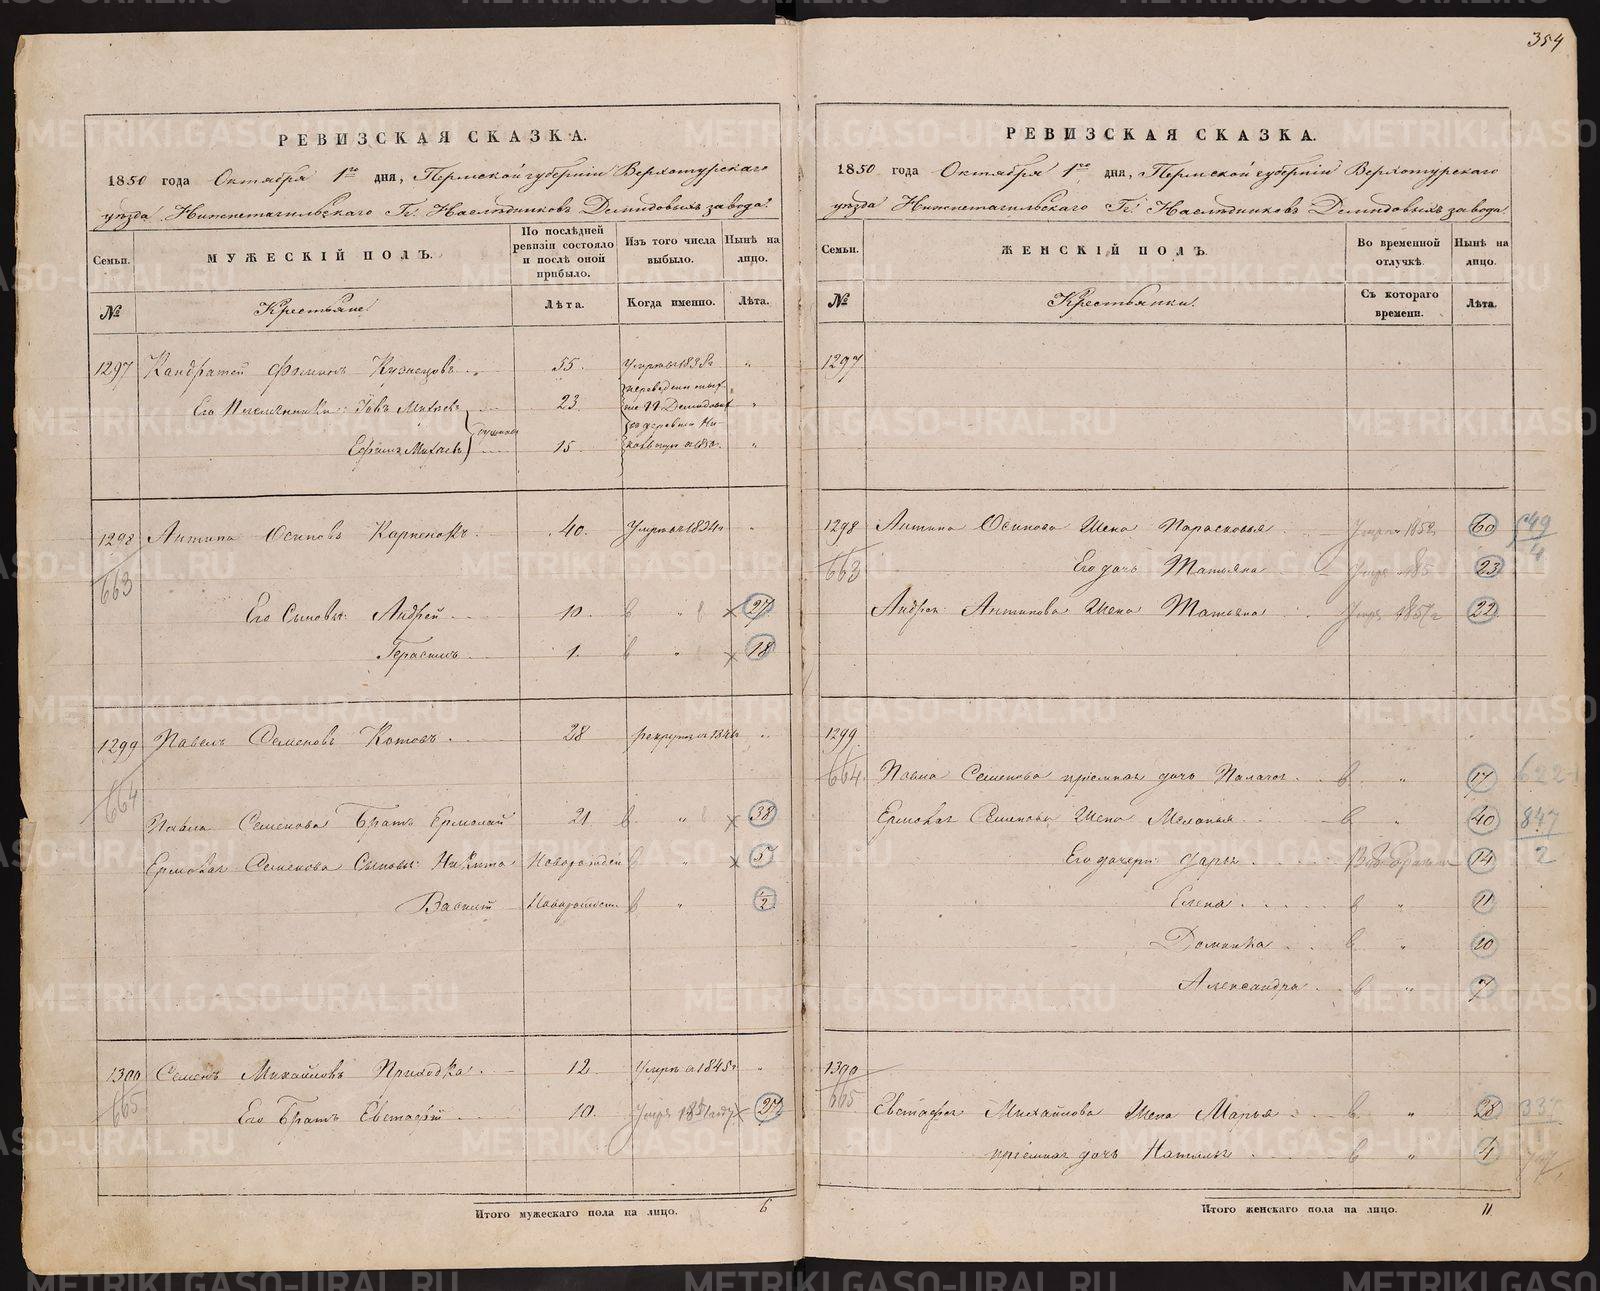 354
РЕВИЗСКАЯ СКАЗКА.
1850 года Октября 1го дня, Пермской губерніи Верхотурскаго
уѣзда Нижнетагильскаго Гг. Наслѣдниковъ Демидовыхъ завода.
Семьи.
МУЖЕСКІЙ ПОЛЪ.
По послѣдней ревизіи состояло и послѣ оной прибыло.
Изъ того числа выбыло.
Нынѣ на лицо.
№
Крестьяне
Лѣта.
Когда именно.
Лѣта.
1297 Кандратей Фоминъ Кузнецовъ 55. Умеръ в 1838г "
Его Племянники: Іовъ Михѣевъ 23 "
Ефимъ Михѣевъ 15 "
1298 Антипа Осиповъ Карпенокъ 40. Умеръ в 1834г "
663
Его Сыновья: Андрей 10. 27
Герасимъ 1. 18
1299 Павелъ Семеновъ Котовъ 28 рекрутъ "
664
Павла Семенова Братъ Ермолай 21 38
Ермолая Семенова Сыновья: Никита Новорожден 5
Василій Новорожден 1/2
1300 Семенъ Михайловъ Приходка 12 Умеръ в 1845г "
665
Его Братъ Евстафій 10. Умеръ 1851 году 27
Итого мужескаго пола на лицо. 6
РЕВИЗСКАЯ СКАЗКА.
1850 года Октября 1го дня, Пермской губерніи Верхотурскаго
уѣзда Нижнетагильскаго Гг. Наслѣдниковъ Демидовыхъ завода
Семьи.
ЖЕНСКІЙ ПОЛЪ.
Во временной отлучкѣ.
Нынѣ на лицо.
№
Крестьянки.
Съ котораго времени.
Лѣта.
1297
1298 Антипа Осипова Жена Парасковья 60
663 Его дочь Татьяна 23
Андрея Антипова Жена Татьяна 22
1299
664 Павла Семенова пріемная дочь Палагея " 17
Ермолая Семенова Жена Меланья " 40 847
Его дочери: Дарья 14 2
Елена " 11
Домника " 10
Александра " 7
1300
665 Евстафія Михайлова Жена Марья " 28
пріемная дочь Наталья " 4
Итого женскаго пола на лицо. 11
METRIKI.GASO-URAL.RU